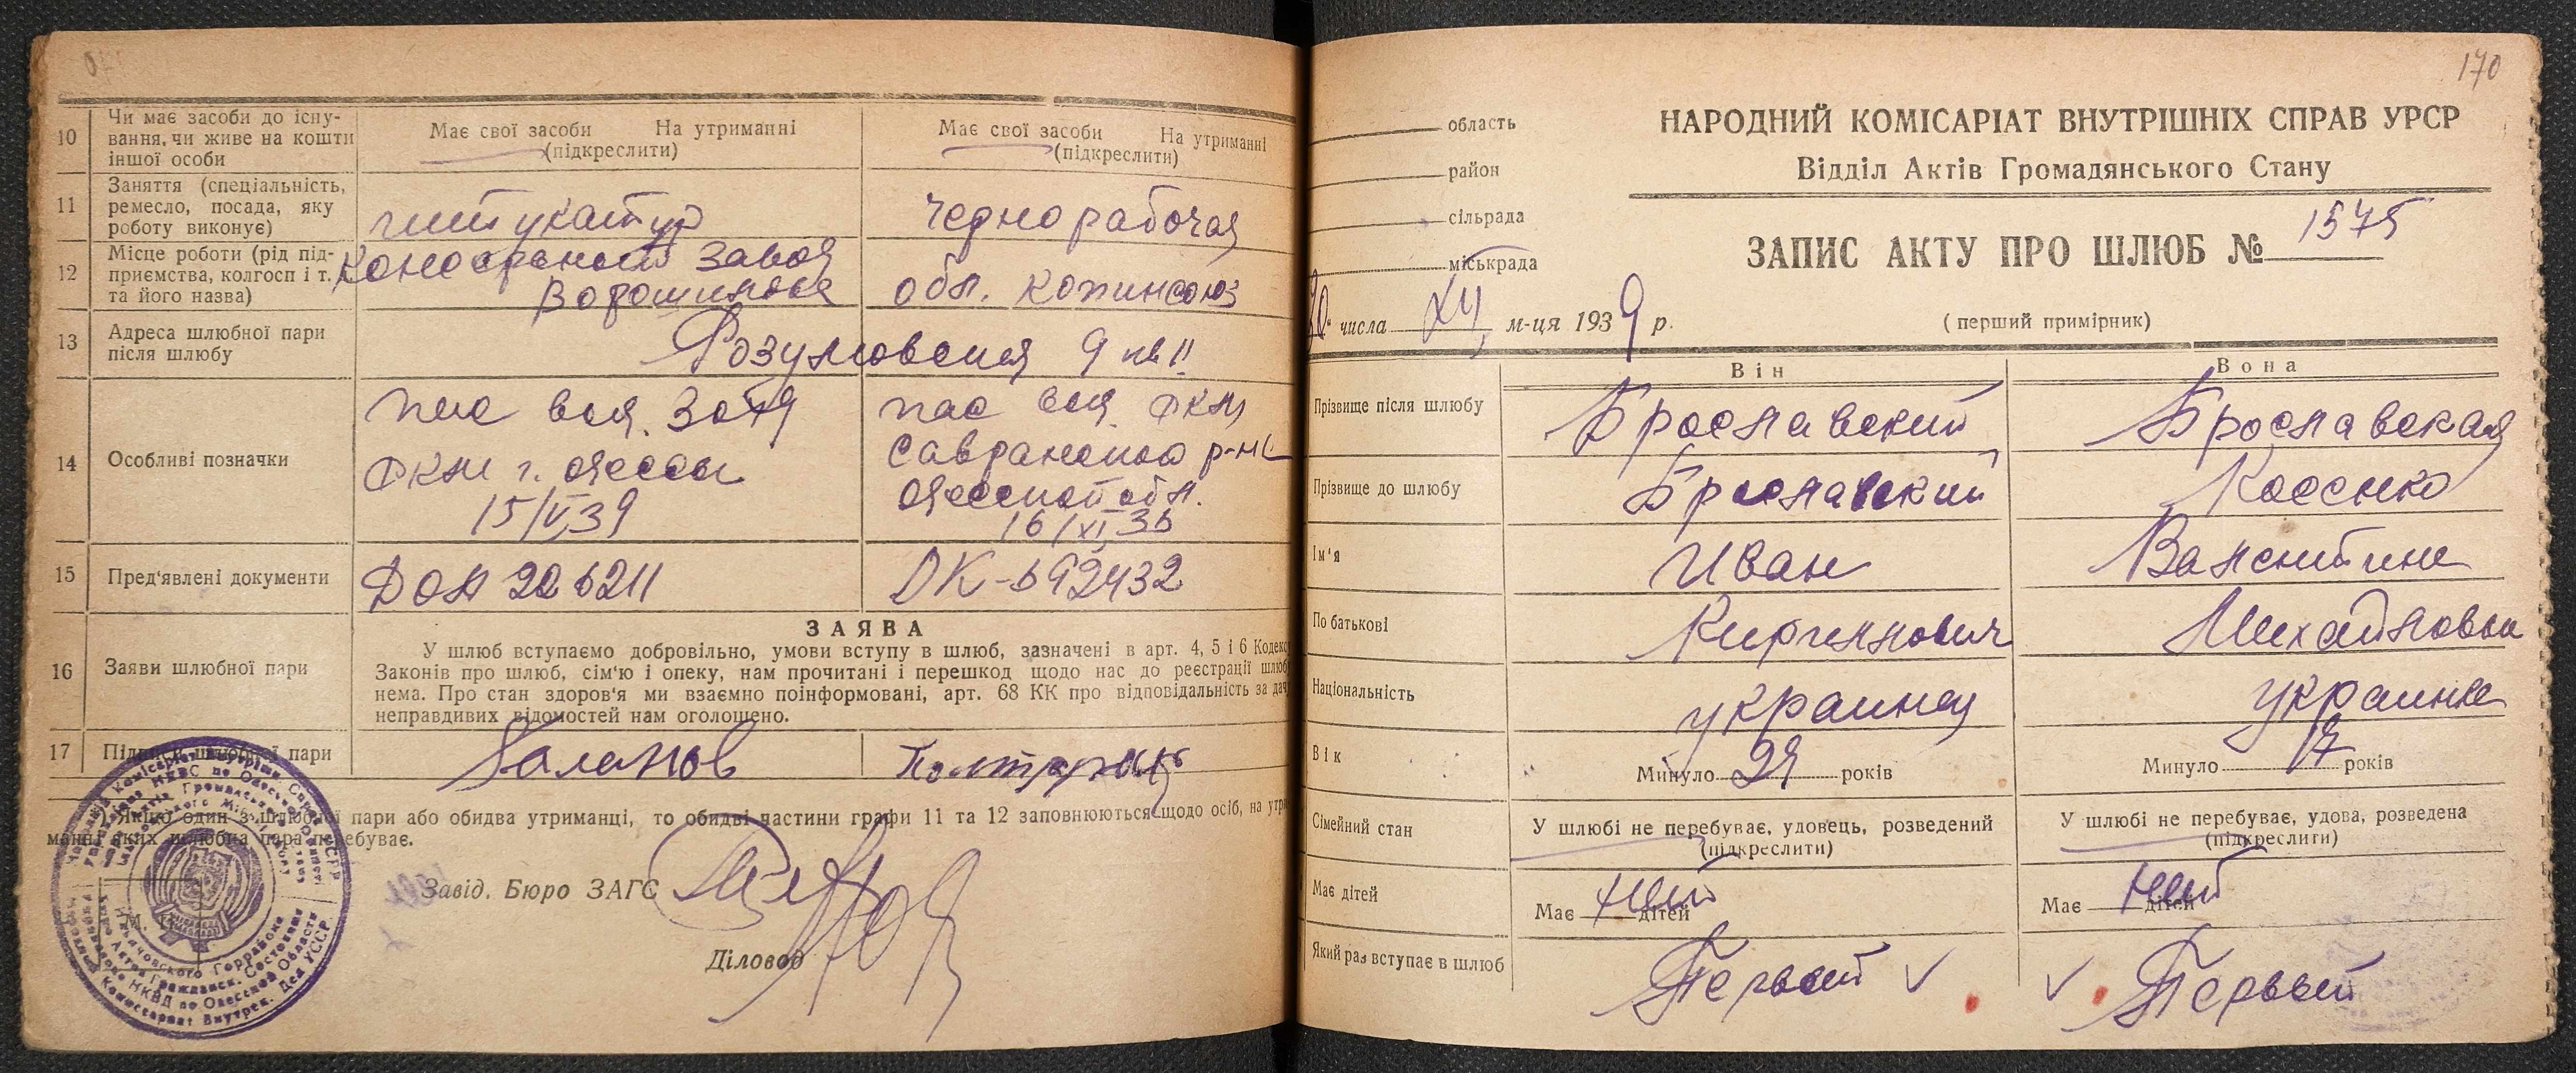 10
Чи має засоби до існу-
вання, чи живе на кошти
іншої особи
Має свої засоби На утриманні
(підкреслити)
Має свої засоби На утриманні
(підкреслити)
11
Заняття (спеціальність,
ремесло, посада, яку
роботу виконує)
штукатур
Чернорабочая
12
Місце роботи (рід під-
приємства, колгосп і т. п.
та його назва)
Консервный завод
Ворошилова
обл. Копинсоюз
13
Адреса шлюбної пари
після шлюбу
Розумовская 9 кв 11
14
Особливі позначки
пас выд. 30
ФКМ г. Одессы
15/V,39
пас выд. ФКМ
Савранского р-на
Одесской обл.
16/XI,36
15
Пред'явлені документи
ДОЛ 226211
ДК-692432
16
Заяви шлюбної пари
ЗАЯВА
У шлюб вступаємо добровільно, умови вступу в шлюб, зазначені в арт. 4, 5 і 6 Кодексу
Законів про шлюб, сім'ю і опеку, нам прочитані і перешкод щодо нас до реєстрації шлюбу
нема. Про стан здоров'я ми взаємно поінформовані, арт. 68 КК про відповідальність за дачу
неправдивих відомостей нам оголошено.
17
Підписи шлюбної пари
Якщо один з шлюбної пари або обидва утриманці, то обидві частини графи 11 та 12 заповнюються щодо осіб, на утри-
манні яких шлюбна пара перебуває.
Завід. Бюро ЗАГС
Діловод
М.
170
область
район
сільрада
міськрада
НАРОДНИЙ КОМІСАРІАТ ВНУТРІШНІХ СПРАВ УРСР
Відділ Актів Громадянського Стану
ЗАПИС АКТУ ПРО ШЛЮБ № 1575
числа XII м-ця 1939 р.
(перший примірник)
Він
Вона
Прізвище після шлюбу
Брославский
Брославская
Прізвище до шлюбу
Брославский
Косенко
Ім'я
Иван
Валентина
По батькові
Кириллович
Михайловна
Національність
украинец
украинка
Вік
Минуло 24 років
Минуло 17 років
Сімейний стан
У шлюбі не перебуває, удовець, розведений
(підкреслити)
У шлюбі не перебуває, удова, розведена
(підкреслити)
Має дітей
Має нет дітей
Має нет дітей
Який раз вступає в шлюб
Первый
Первый